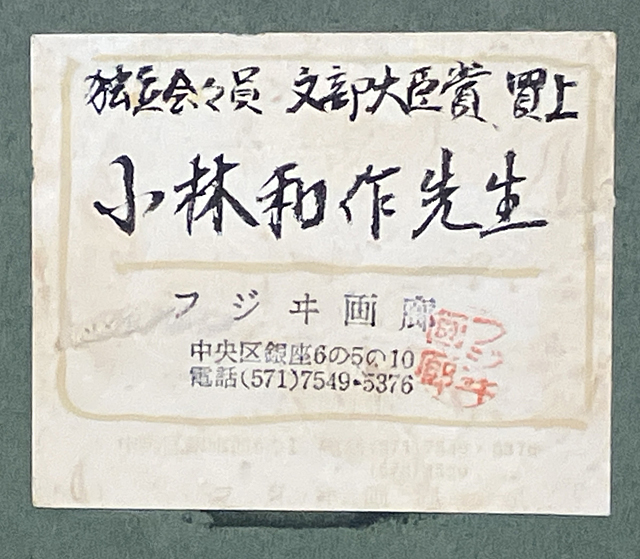 独立会々員 文部大臣賞 買上
小林和作先生
フジヰ画廊
中央区銀座6の5の10
電話(571)7549・5376
フジヰ画廊